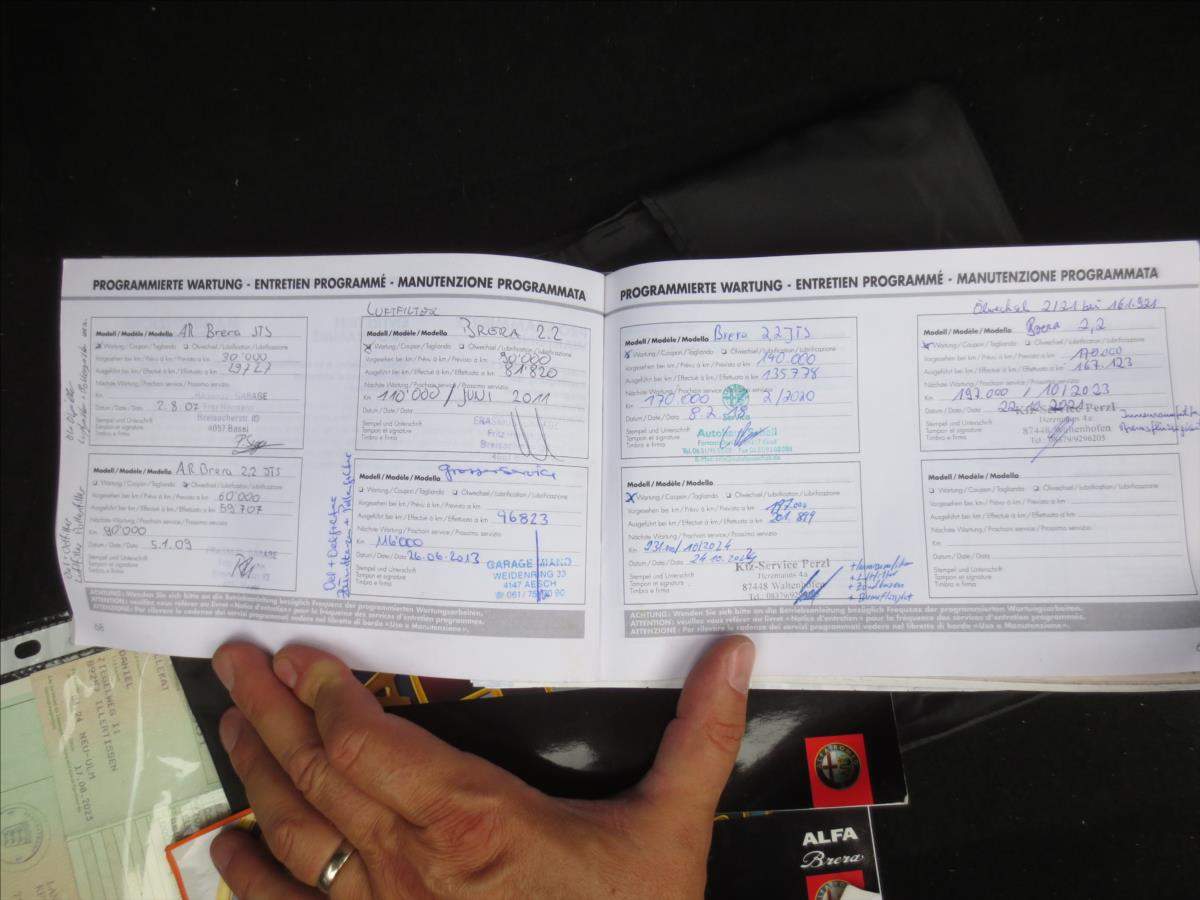 PROGRAMMIERTE WARTUNG - ENTRETIEN PROGRAMMÉ - MANUTENZIONE PROGRAMMATA
Modell / Modèle / Modello AR Brera JTS
Wartung / Coupon / Tagliando Ölwechsel / Lubrification / lubrificazione
Vorgesehen bei km / Prévu à km / Previsto a km 30'000
Ausgeführt bei km / Effectué à km / Effettuato a km 29727
Nächste Wartung / Prochain service / Prossimo servizio
Km
Datum / Date / Data 2.8.07
Stempel und Unterschrift
Tampon et signature
Timbro e firma
GARAGE
4057 Basel
Modell / Modèle / Modello AR Brera 2.2 JTS
Wartung / Coupon / Tagliando Ölwechsel / Lubrification / lubrificazione
Vorgesehen bei km / Prévu à km / Previsto a km 60'000
Ausgeführt bei km / Effectué à km / Effettuato a km 59'707
Nächste Wartung / Prochain service / Prossimo servizio
Km 90'000
Datum / Date / Data 5.1.09
Stempel und Unterschrift
Tampon et signature
Timbro e firma
LUFTFILTER
Modell / Modèle / Modello BRERA 2.2
Wartung / Coupon / Tagliando Ölwechsel / Lubrification / lubrificazione
Vorgesehen bei km / Prévu à km / Previsto a km 90'000
Ausgeführt bei km / Effectué à km / Effettuato a km 81'820
Nächste Wartung / Prochain service / Prossimo servizio
Km 110'000 / JUNI 2011
Datum / Date / Data
Stempel und Unterschrift
Tampon et signature
Timbro e firma
Fritz
Oel + Oelfilter
Zündkerzen + Pollenfilter
Modell / Modèle / Modello grosser Service
Wartung / Coupon / Tagliando Ölwechsel / Lubrification / lubrificazione
Vorgesehen bei km / Prévu à km / Previsto a km
Ausgeführt bei km / Effectué à km / Effettuato a km 96823
Nächste Wartung / Prochain service / Prossimo servizio
Km 116'000
Datum / Date / Data 26.06.2013
Stempel und Unterschrift
Tampon et signature
Timbro e firma
GARAGE
WEIDENRING 33
4147 AESCH
ACHTUNG: Wenden Sie sich bitte an die Betriebsanleitung bezüglich Frequenz der programmierten Wartungsarbeiten.
ATTENTION: veuillez vous référer au livret «Notice d'entretien» pour la fréquence des services d'entretien programmés.
ATTENZIONE: Per rilevare le cadenze dei servizi programmati vedere nel libretto di bordo «Uso e Manutenzione».
PROGRAMMIERTE WARTUNG - ENTRETIEN PROGRAMMÉ - MANUTENZIONE PROGRAMMATA
Modell / Modèle / Modello Brera 2,2 JTS
Wartung / Coupon / Tagliando Ölwechsel / Lubrification / lubrificazione
Vorgesehen bei km / Prévu à km / Previsto a km 140.000
Ausgeführt bei km / Effectué à km / Effettuato a km 135778
Nächste Wartung / Prochain service / Prossimo servizio
Km 170.000 2/2020
Datum / Date / Data 8.2.18
Stempel und Unterschrift
Tampon et signature
Timbro e firma
Modell / Modèle / Modello
Wartung / Coupon / Tagliando Ölwechsel / Lubrification / lubrificazione
Vorgesehen bei km / Prévu à km / Previsto a km 197.000
Ausgeführt bei km / Effectué à km / Effettuato a km 201.899
Nächste Wartung / Prochain service / Prossimo servizio
Datum / Date / Data
Stempel und Unterschrift
Tampon et signature
Timbro e firma
Kfz-Service Perzl
Herzmanns 4a
87448 Waltenhofen
+ Luftfilter
+ Zündkerzen
Ölwechsel 2/21 bei 161.921
Modell / Modèle / Modello Brera 2,2
Wartung / Coupon / Tagliando Ölwechsel / Lubrification / lubrificazione
Vorgesehen bei km / Prévu à km / Previsto a km 170.000
Ausgeführt bei km / Effectué à km / Effettuato a km 167.123
Nächste Wartung / Prochain service / Prossimo servizio
Km 197.000 / 10/2023
Datum / Date / Data
Stempel und Unterschrift
Tampon et signature
Timbro e firma
Kfz-Service Perzl
Herzmanns 4a
87448 Waltenhofen
Tel. 08379/9296205
Innenraumfilter
Bremsflüssigkeit
Modell / Modèle / Modello
Wartung / Coupon / Tagliando Ölwechsel / Lubrification / lubrificazione
Vorgesehen bei km / Prévu à km / Previsto a km
Ausgeführt bei km / Effectué à km / Effettuato a km
Nächste Wartung / Prochain service / Prossimo servizio
Km
Datum / Date / Data
Stempel und Unterschrift
Tampon et signature
Timbro e firma
ACHTUNG: Wenden Sie sich bitte an die Betriebsanleitung bezüglich Frequenz der programmierten Wartungsarbeiten.
ATTENTION: veuillez vous référer au livret «Notice d'entretien» pour la fréquence des services d'entretien programmés.
ATTENZIONE: Per rilevare le cadenze dei servizi programmati vedere nel libretto di bordo «Uso e Manutenzione».
DANIEL
ZIEGELWEG 11
89257 ILLERTISSEN
NEU-ULM
17.08.2023
ALFA
Brera